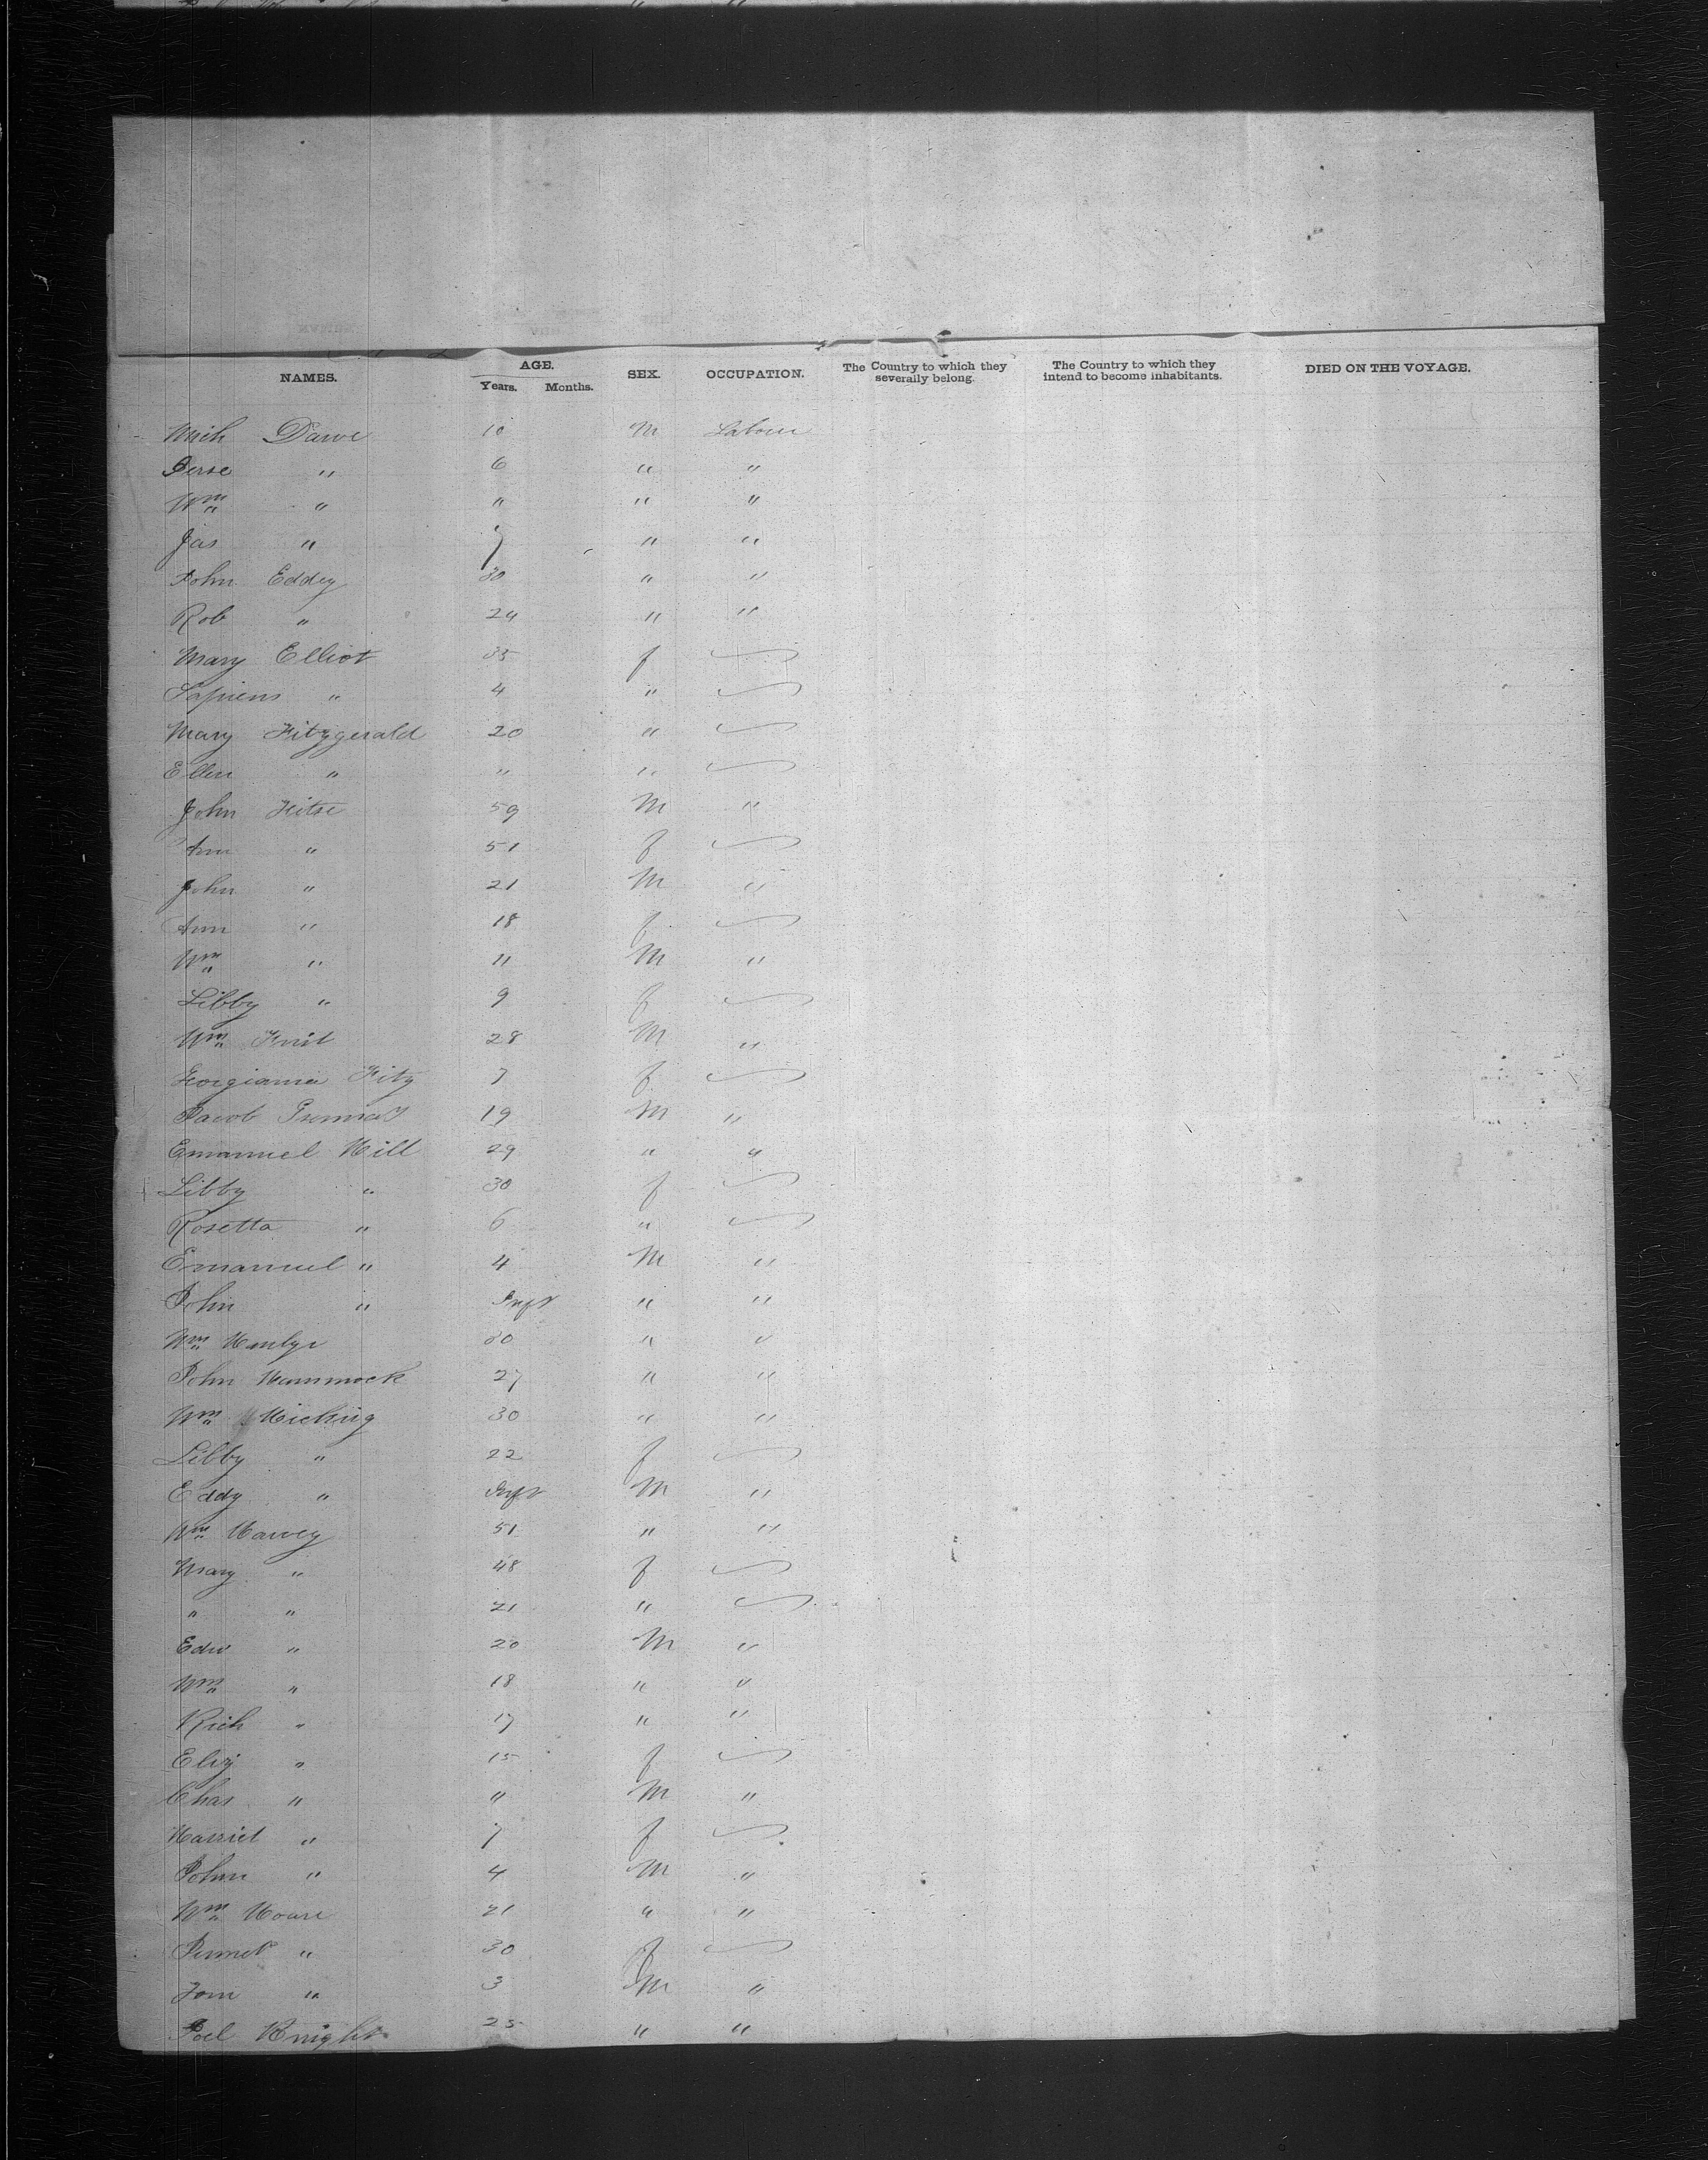 NAMES. AGE. Years. Months. SEX. OCCUPATION. The Country to which they severally belong. The Country to which they intend to become inhabitants. DIED ON THE VOYAGE.
Mich Dawe 10 M Labour
6 " "
Wm " " " "
Jas " 7 " "
John Eddy 30 " "
Rob " 24 " "
Mary Elliot 35 f
" 4 "
Mary Fitzgerald 20 "
Ellen " " "
John 59 M "
Ann " 51 f
John " 21 M "
Ann " 18 f
Wm " 11 M "
Libby " 9 f
Wm 28 M "
Georgiania Fitz 7 f
Jacob 19 M "
Emanuel Hill 29 " "
Libby " 30 f
Rosetta " 6 "
Emanuel " 4 M "
John " Inft " "
Wm 30 " "
John Hammock 27 " "
Wm 30 " "
Libby " 22 f
Eddy " Inft M "
Wm Harvey 51 " "
Mary " 48 f
" " 21 "
Edw " 20 M "
Wm " 18 " "
Rich " 17 " "
Eliz " 15 f
Chas " " M "
Harriet " 7 f
John " 4 M "
Wm Hoare 21 " "
" 30 f
Tom " 3 M "
Joel Knight 25 " "